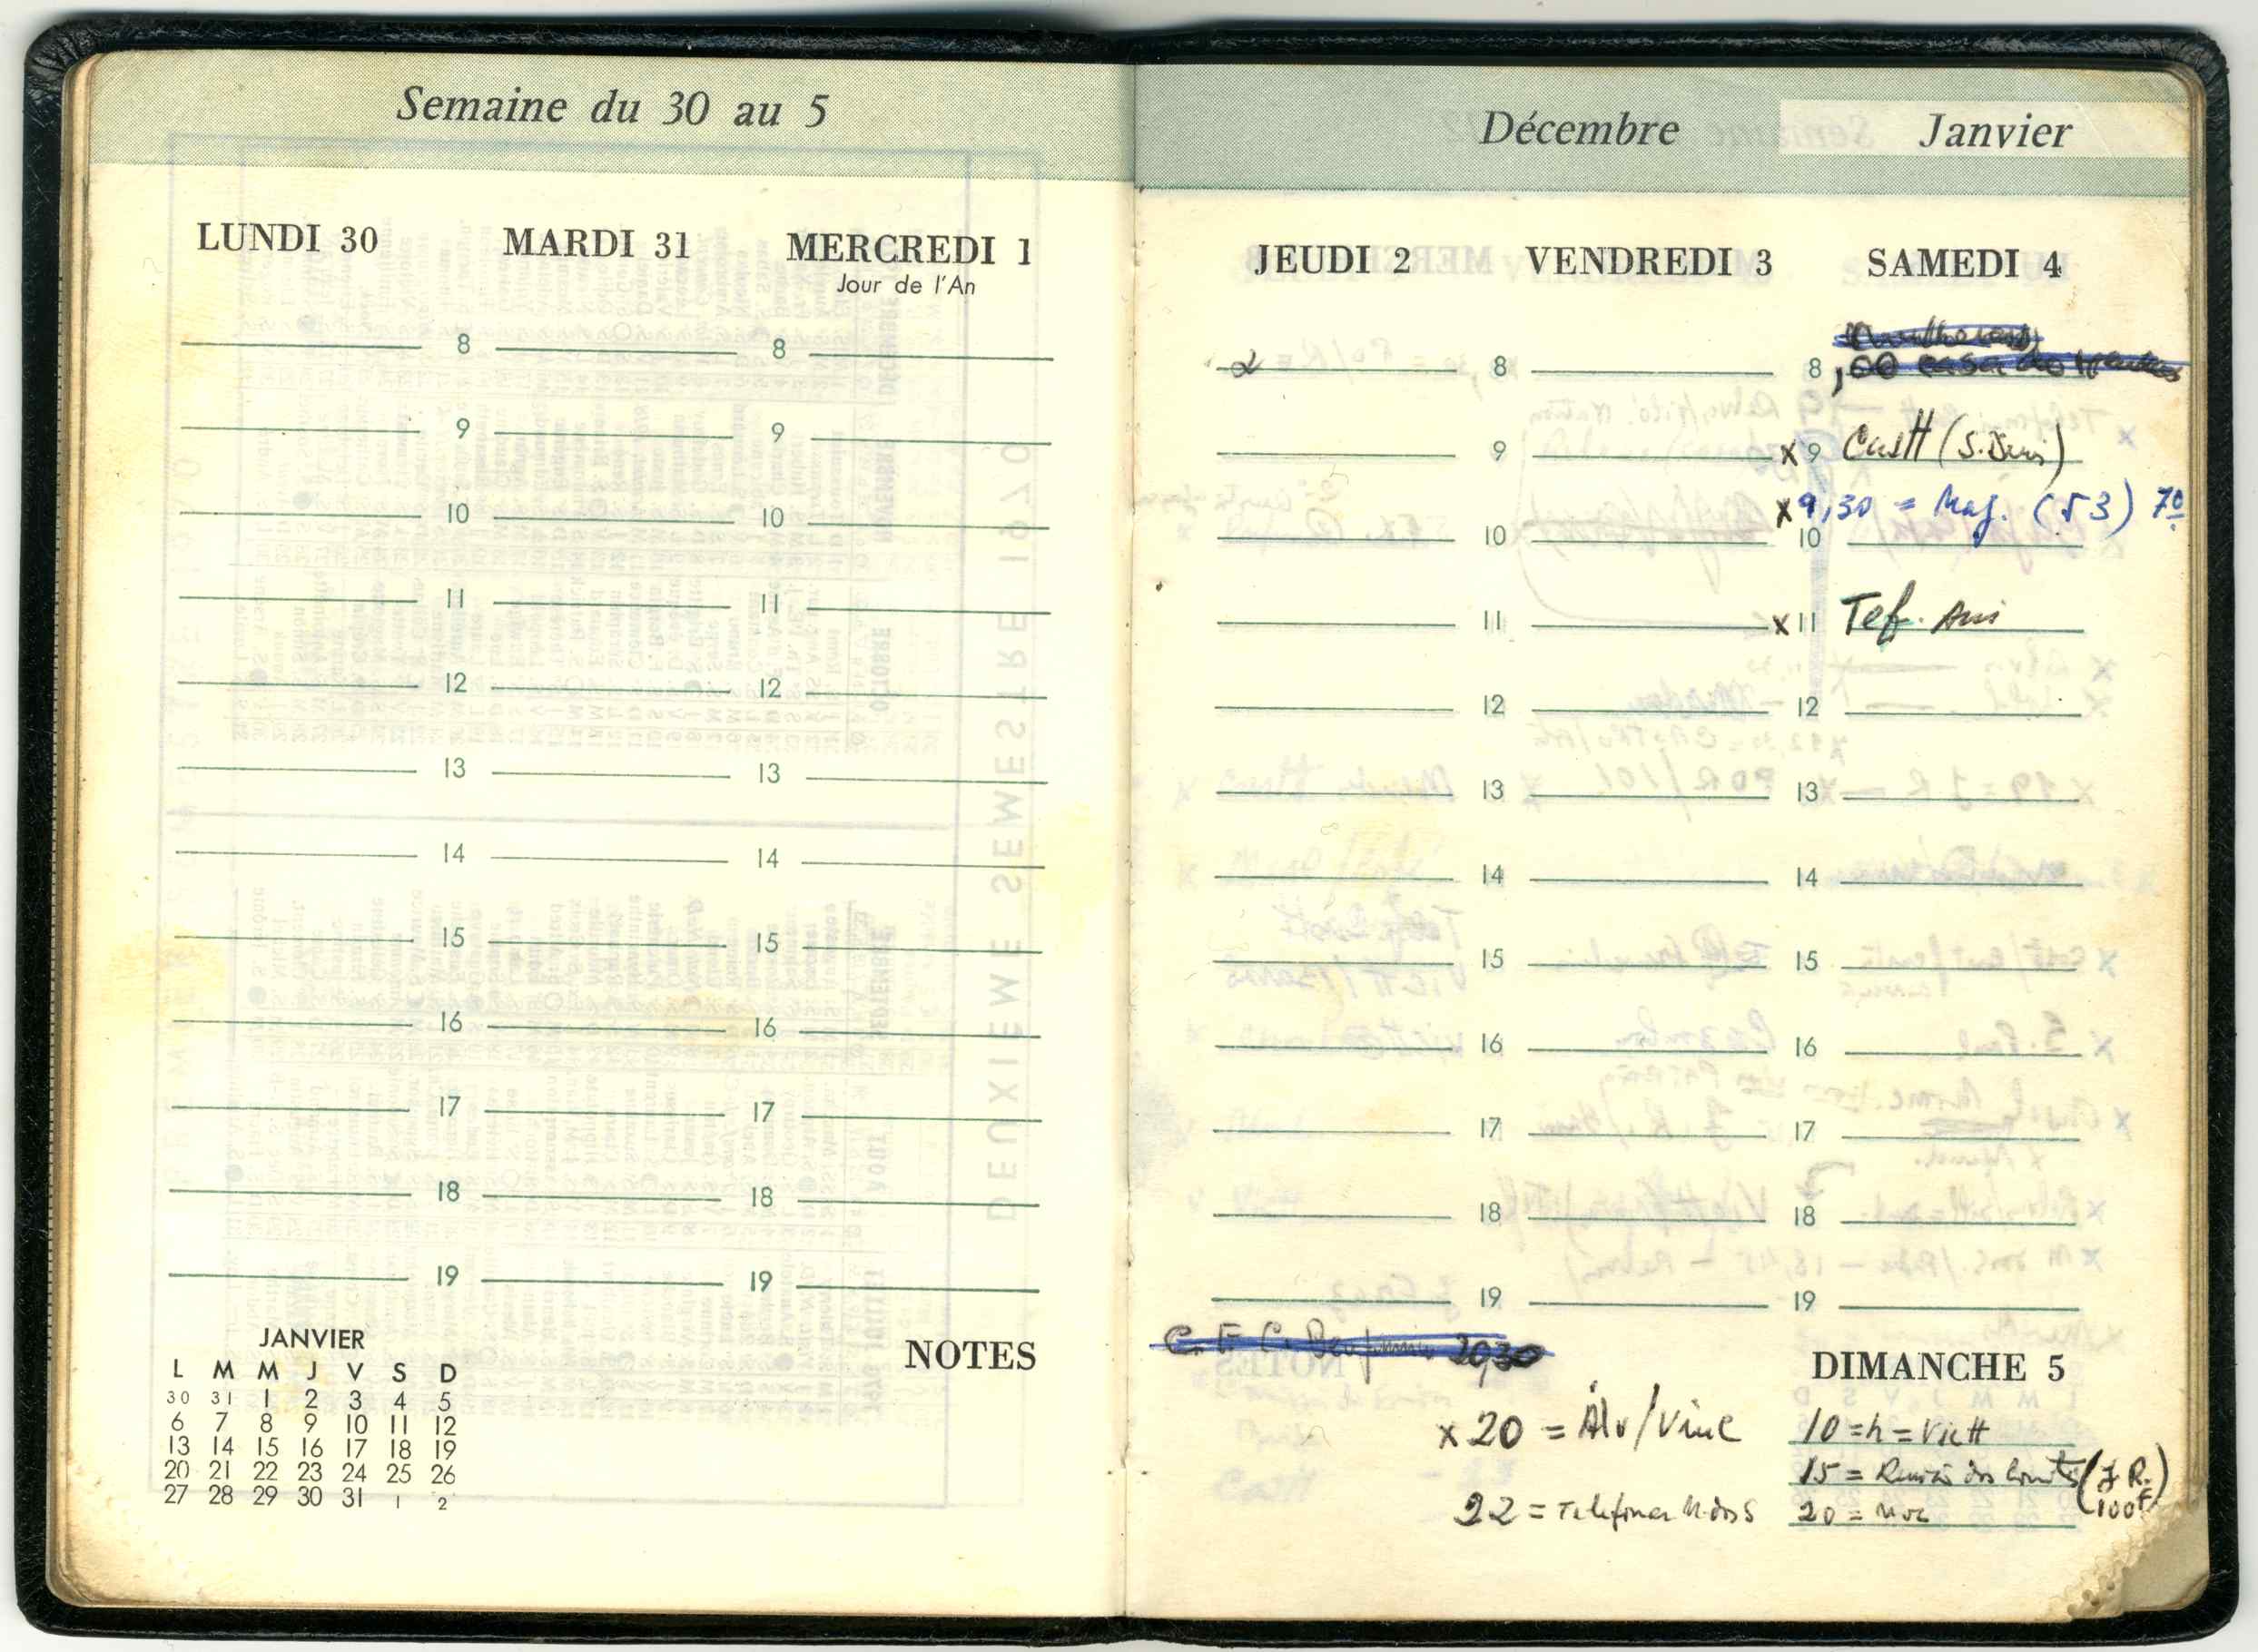 Semaine du 30 au 5
LUNDI 30 MARDI 31 MERCREDI 1
Jour de l'An
8 8
9 9
10 10
11 11
12 12
13 13
14 14
15 15
16 16
17 17
18 18
19 19
JANVIER
L M M J V S D
30 31 1 2 3 4 5
6 7 8 9 10 11 12
13 14 15 16 17 18 19
20 21 22 23 24 25 26
27 28 29 30 31 1 2
NOTES
Décembre Janvier
JEUDI 2 VENDREDI 3 SAMEDI 4
8 8
9 x 9 Castt (S. Denis)
x 9,30 = Maj. (53) 70
10 10
11 x 11 Telef.
12 12
13 13
14 14
15 15
16 16
17 17
18 18
19 19
C. F. C. 20,30
x 20 = Álv/Vinc
22 = Telefonar M. dos S
DIMANCHE 5
10 = h = Victt
15 = Reunião dos Comités (J R.
100F)
20 =